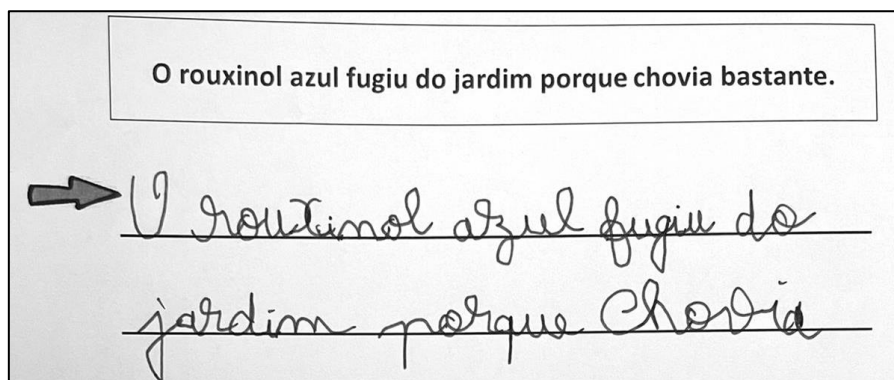 O rouxinol azul fugiu do jardim porque chovia bastante.
O rouxinol azul fugiu do
jardim porque Chovia